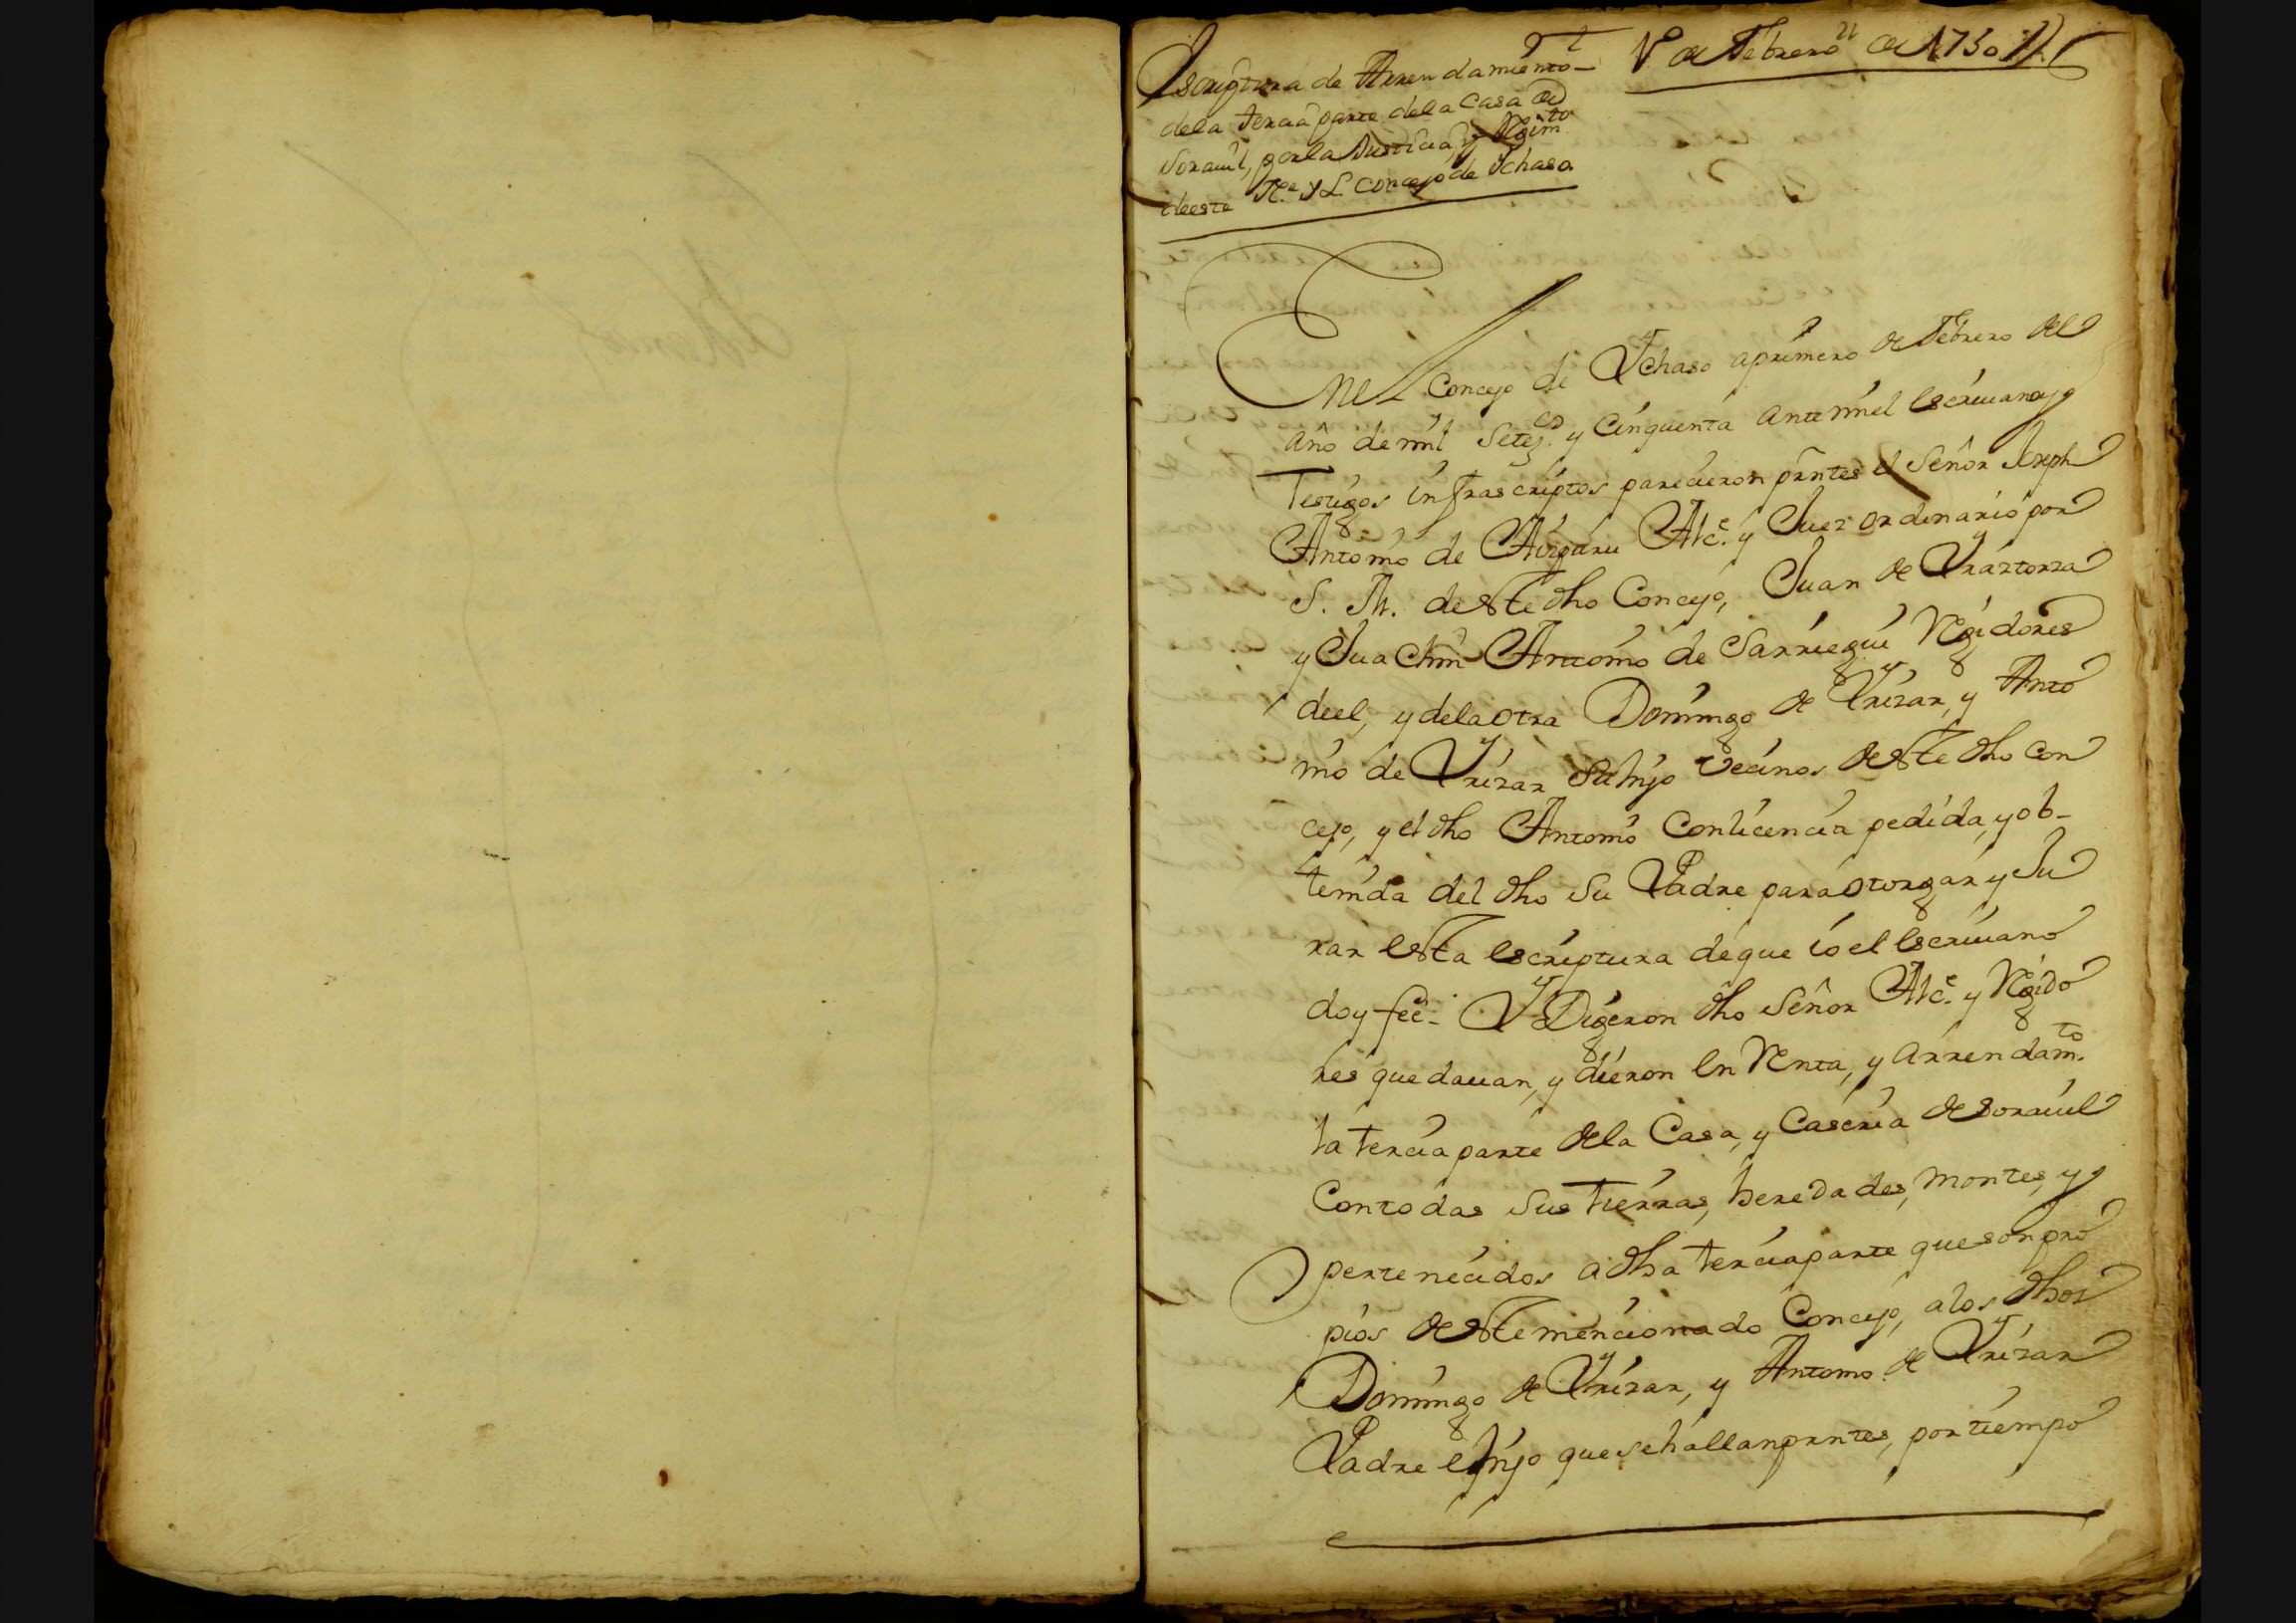 Escriptura de Arrendamiento
dela tercia parte dela Casa de
Sorauil, por la Justicia, y Rgim.to
deeste N. y L. Concejo de Ychaso
1.º de Febrero de 1750
En el Concejo de Ychaso a primero de Febrero del
año de mil Setez.os y Cinquenta ante mi el escriuano y
Testigos infrascriptos parecieron prntes el Señor Joseph
Antonio de Aizpuru Alc.e y Juez ordinario por
S. M. deste dho Concejo, Juan de Yraztorza
y Juachin Antonio de Sarriegui Rgidores
deel, y dela otra Domingo de Yrizar, y Anto
nio de Yrizar Su hijo vecinos deste dho Con
cejo, y el dho Antonio Con licencia pedida, y ob-
tenida del dho Su Padre para otorgar y Ju
rar esta escriptura de que io el escriuano
doy feê- Y Digeron dho Señor Alc.e y Rgido
res que dauan, y dieron en Renta, y arrendam.to
la tercia parte dela Casa, y Caseria de Sorauil
Con todas Sus tierras, heredades, montes, y
pertenecidos a dha tercia parte que son pro
pios deste mencionado Concejo, a los dhos
Domingo de Yrizar, y Antonio de Yrizar
Padre e hijo que se hallan prntes, por tiempo